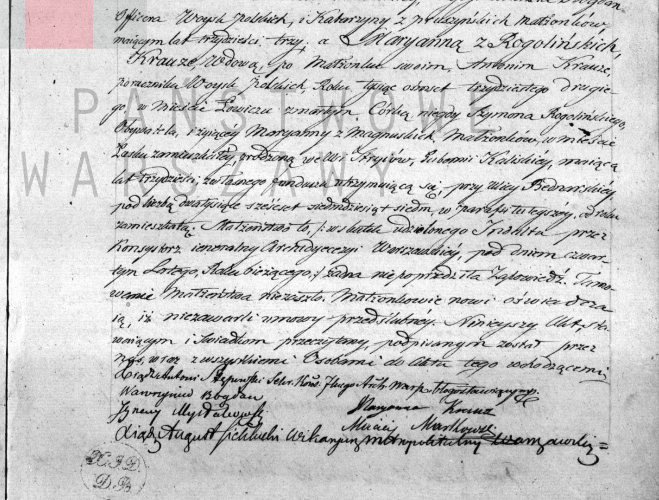 Officera Woysk Polskich, i Katarzyny z matżonków,
maiącym lat trzydzieści trzy, a Maryanną z Rogolińskich,
Krauze Wdową, po Małżonku swoim, Antonim Krauze,
poruczniku Woysk Polskich, Roku tysiąc ośmset trzydziestego drugie-
go, w Mieście Łowiczu zmarłym. Córką niegdy Szymona Rogolińskiego,
Obywatela, i żyiącey Maryanny z Magnuskich, Małżonków, w mieście
Łasku zamieszkałey, urodzoną we Wsi Gubernii Kaliskiey, maiącą
lat trzydzieści, z własnego funduszu utrzymuiącą się, przy Ulicy Bednarskiey
pod liczbą dwa tysiące sześćset siedmdziesiąt siedm, w parafii tuteyszéy, od roku
zamieszkałą. Małżeństwo to, w skutek udzielonego Indultu przez
Konsystorz ieneralny Archidyecezyi Warszawskiey, pod dniem czwar-
tym Lutego, Roku bieżącego, żadna nie poprzedziła Zapowiedź. Tamo-
wanie Małżeństwa niezaszło. Małżonkowie nowi oświadcza-
ią, iż niezawarli umowy przedślubnéy. Ninieyszy Akt, sta-
waiącym i Świadkom przeczytany, podpisanym został przez
nas, wraz z wszystkiemi Osobami do Aktu tego wchodzącemi
Xiądz Antoni Sekr. Kons. Arch. Warsz. błogosławiący
Wawrzyniec Bogdan
Maryanna Krauz
Ignacy
Maciéj Markowski
Xiądz August Wikaryusz Metropolitalny Warszawski
PAŃSTWOWE
WARSZAWY
D. B.